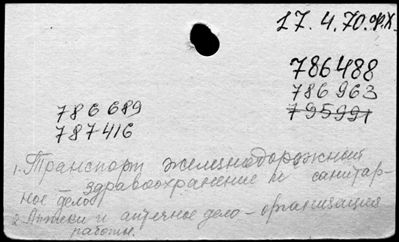 17.4.70.Ф.Х.
786488
786963
795991
786689
787416
1. Транспорт железнодорожный
– здравоохранение и санитар-
ное дело
2. Аптеки и аптечное дело – организация
работы.